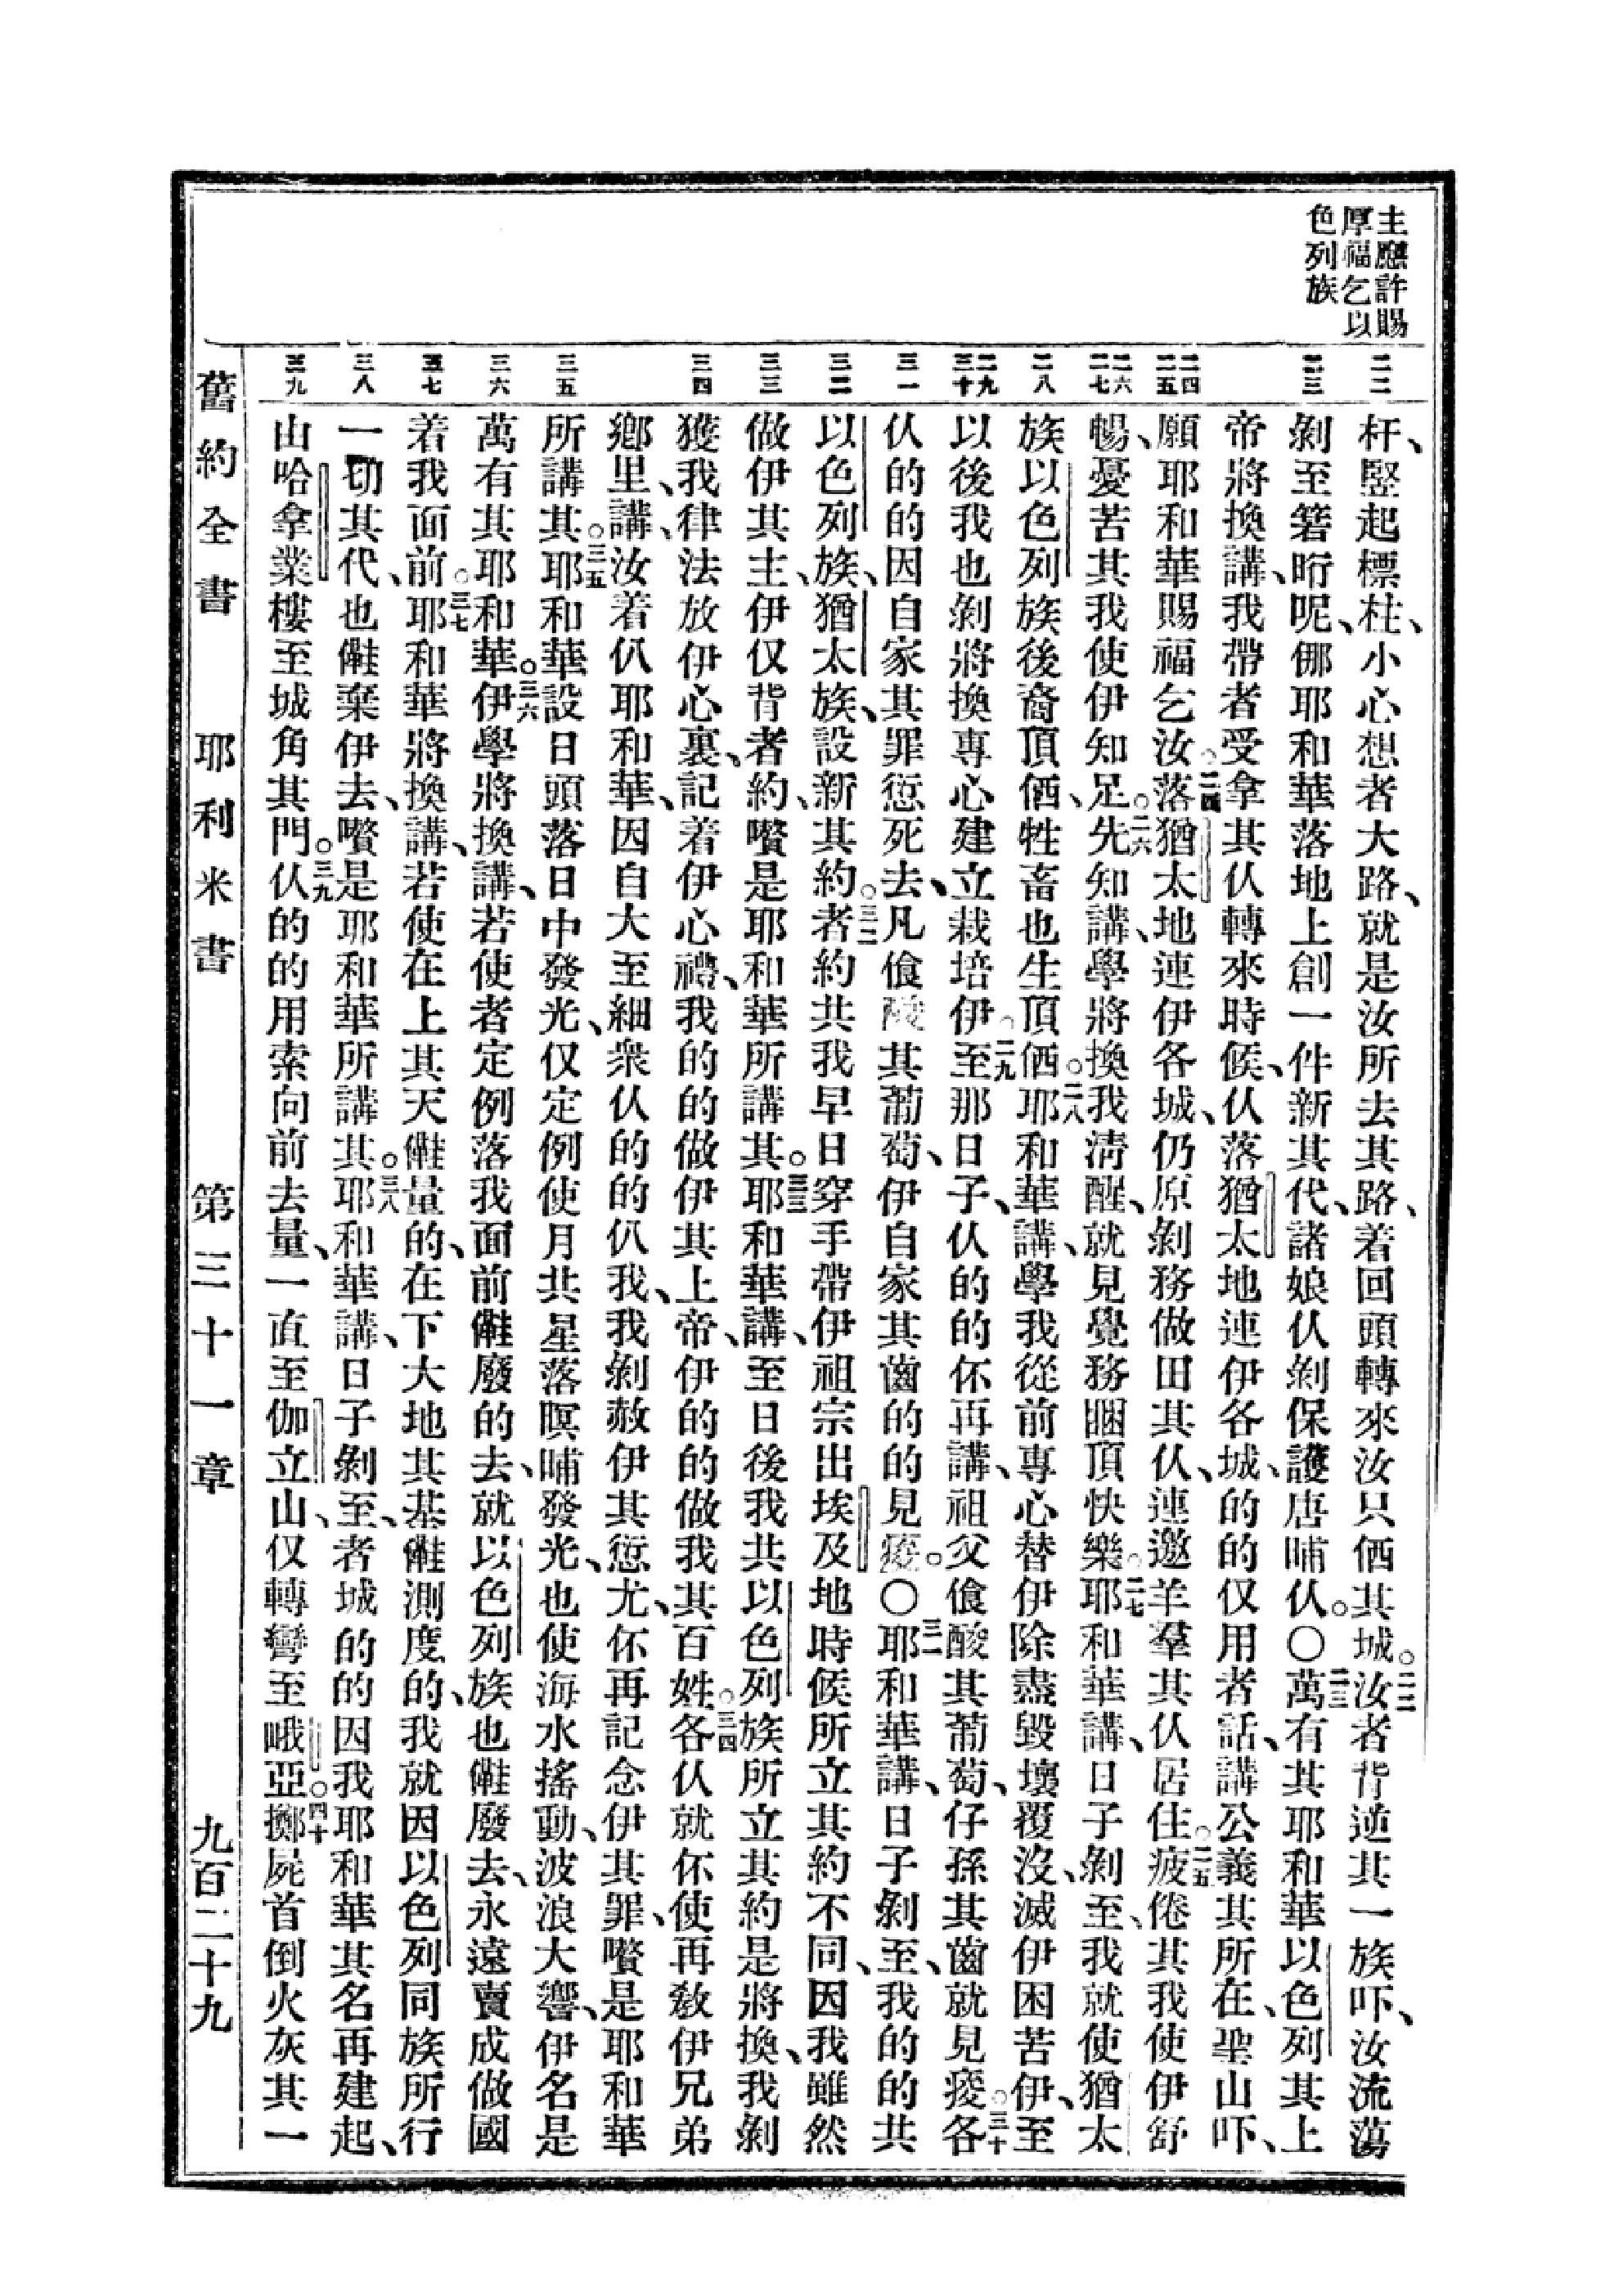 主應許賜
厚福乞以
色列族
二二
二三
二四
二五
二六
二七
二八
二九
三十
三一
三二
三三
三四
三五
三六
三七
三八
三九
杆、竪起標柱、小心想者大路、就是汝所去其路、着回頭轉來汝只伵其城。二二汝者背逆其一族吓、汝流蕩
剝至箬𣍐呢、倻耶和華落地上創一件新其代、諸娘仈剝保護唐晡仈。〇二三萬有其耶和華以色列其上
帝將換講、我帶者受拿其仈轉來時候、仈落猶太地連伊各城、的的仅用者話、講公義其所在、聖山吓、
願耶和華賜福乞汝。二四落猶太地連伊各城、仍原剝務做田其仈、連邀羊羣其仈居住。二五疲倦其我使伊舒
暢、憂苦其我使伊知足。二六先知講、學將換我淸醒、就見覺務睏頂快樂。二七耶和華講、日子剝至、我就使猶太
族以色列族後裔頂伵、牲畜也生頂伵。二八耶和華講、學我從前專心替伊除盡毀壞覆沒、滅伊困苦伊、至
以後我也剝將換專心建立栽培伊。二九至那日子、仈的的伓再講、祖父飡酸其葡萄、仔孫其齒就見痠。三十各
仈的的因自家其罪愆死去、凡飡酸其葡萄、伊自家其齒的的見痠。〇三一耶和華講、日子剝至、我的的共
以色列族、猶太族、設新其約。三二者約共我早日穿手帶伊祖宗出埃及地時候所立其約不同、因我雖然
做伊其主、伊仅背者約、嚽是耶和華所講其。三三耶和華講、至日後我共以色列族所立其約是將換、我剝
獲我律法放伊心裏、記着伊心禮、我的的做伊其上帝、伊的的做我其百姓。三四各仈就伓使再敎伊兄弟
鄕里、講、汝着仈耶和華、因自大至細衆仈的的仈我、我剝赦伊其愆尤、伓再記念伊其罪、嚽是耶和華
所講其。三五耶和華設日頭落日中發光、仅定例使月共星落暝晡發光、也使海水搖動、波浪大響、伊名是
萬有其耶和華。三六伊學將換講、若使者定例落我面前𣍐廢的去、就以色列族也𣍐廢去、永遠賣成做國
着我面前。三七耶和華將換講、若使在上其天𣍐量的、在下大地其基𣍐測度的、我就因以色列同族所行
一切其代、也𣍐棄伊去、嚽是耶和華所講其。三八耶和華講、日子剝至、者城的的因我耶和華其名再建起、
山哈拿業樓至城角其門。三九仈的的用索向前去量、一直至伽立山、仅轉彎至峨亞。四十擲屍首倒火灰其一
舊約全書　耶利米書　第三十一章　九百二十九